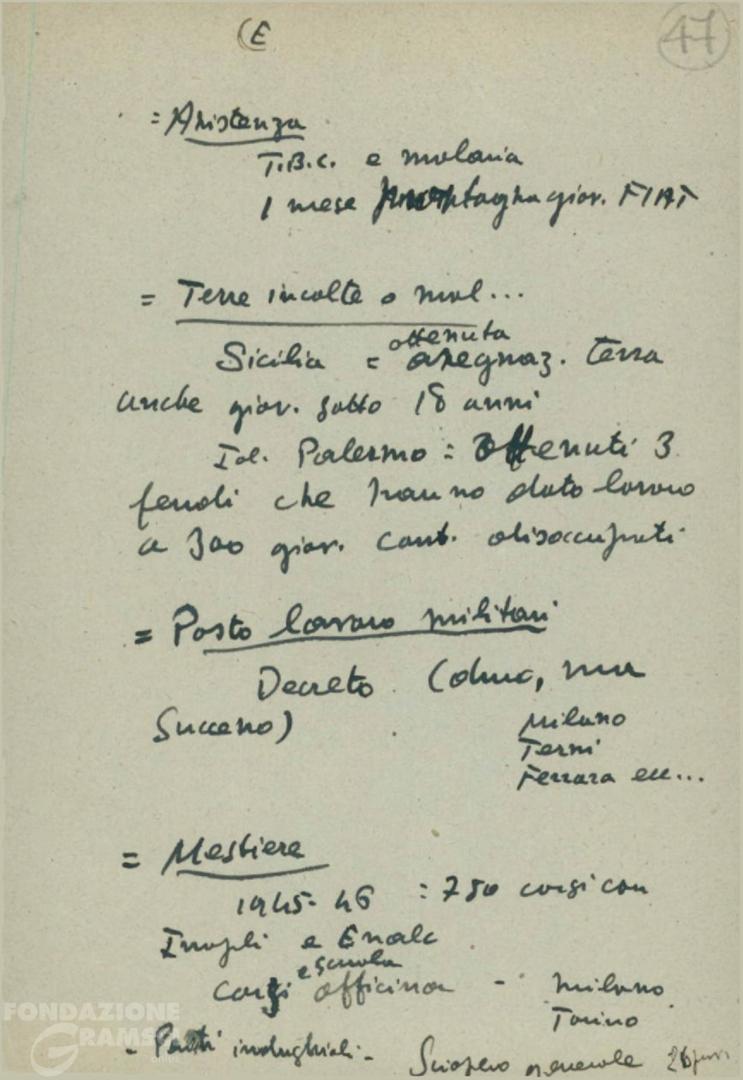 (E
47
= Assistenza
T.B.C. e malaria
1 mese montagna giov. FIAT
= Terre incolte o mal...
ottenuta
Sicilia = assegnaz. terra
anche giov. sotto 18 anni
Id. Palermo = ottenuti 3
feudi che hanno dato lavoro
a 300 giov. cont. disoccupati
= Posto lavoro militari
Decreto
Successo)
Milano
Terni
Ferrara ecc...
= Mestiere
1945-46 : 750 corsi con
e Enalc
e scuola
corsi officina - Milano
Torino
- Patti industriali - Sciopero generale 26
FONDAZIONE
GRAMSCI